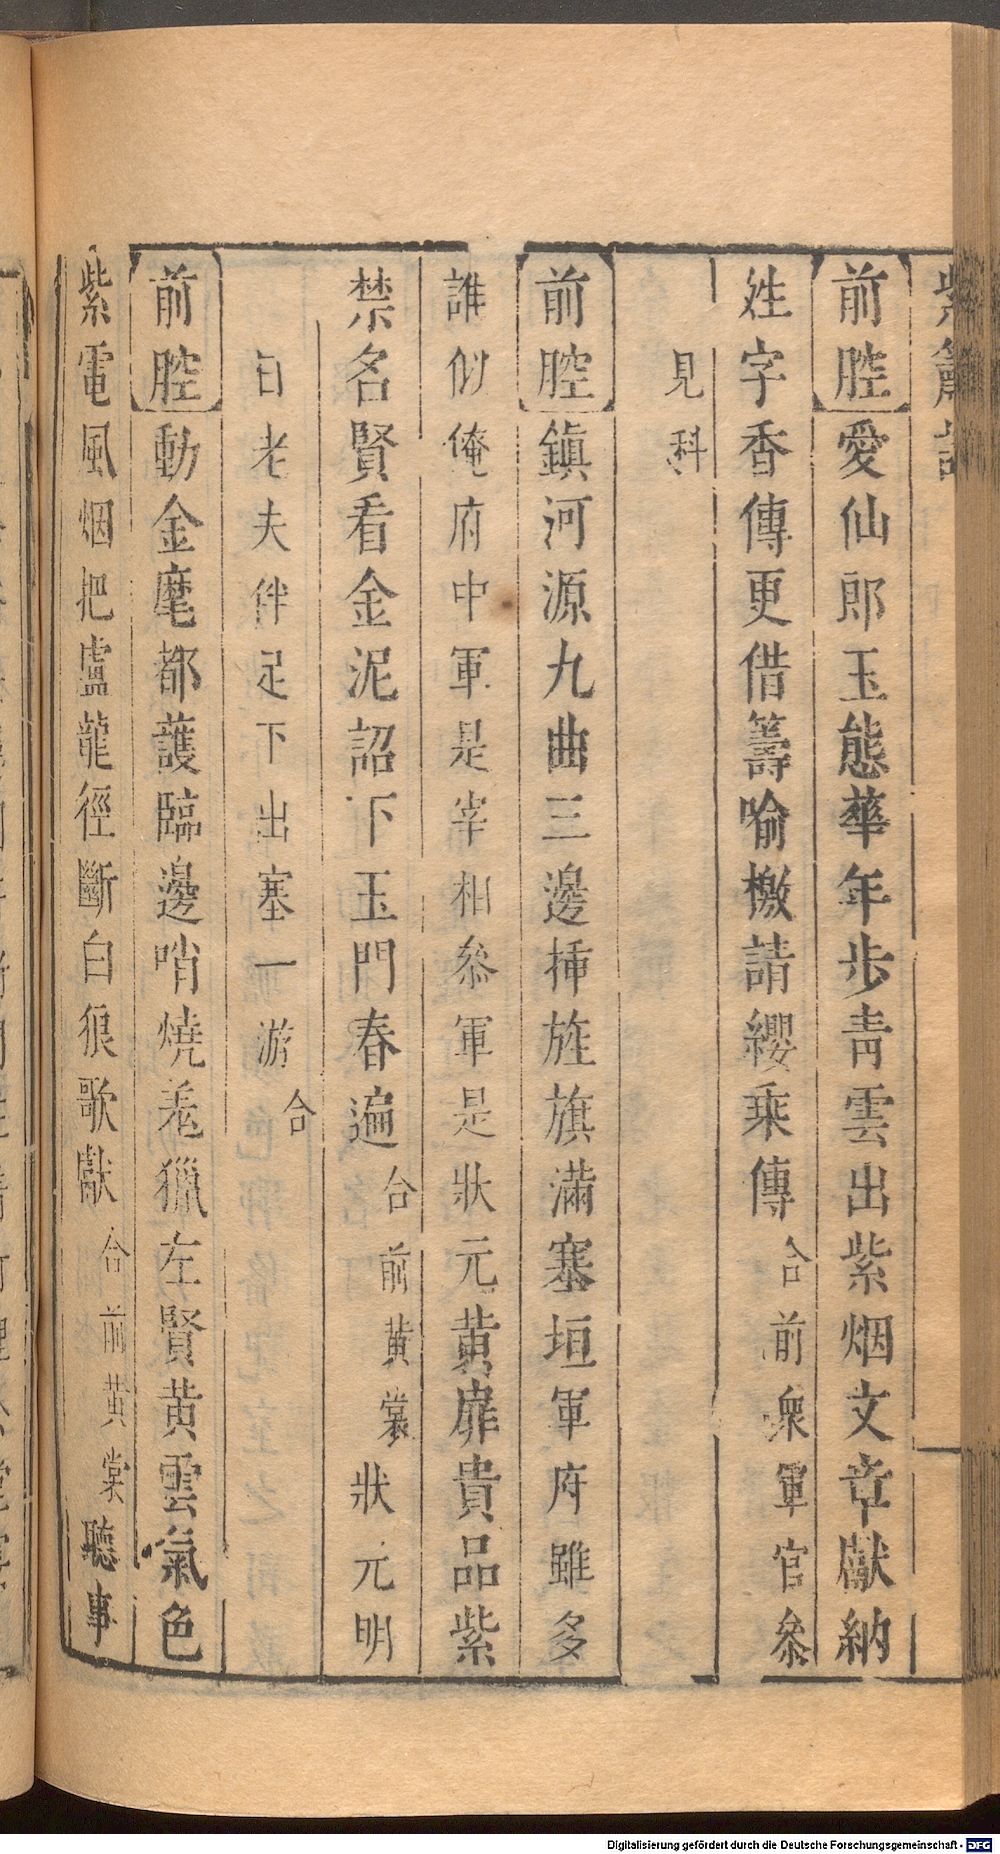 紫簫記
前腔愛仙郎玉態華年步青雲出紫烟文章獻納
姓字香傳更借籌喻檄請纓乘傳合前衆軍官叅
見科
前腔鎮河源九曲三邊揷旌旗滿塞垣軍府雖多
誰似俺府中軍是宰相叅軍是狀元黃扉貴品紫
禁名賢看金泥詔下玉門春遍合前黃裳狀元明
日老夫伴足下出塞一游合
前腔動金麾都護臨邊哨燒羗獵左賢黃雲氣色
紫電風烟把盧龍徑斷白狼歌獻合前黃裳聽事
Digitalisierung gefördert durch die Deutsche Forschungsgemeinschaft - DFG